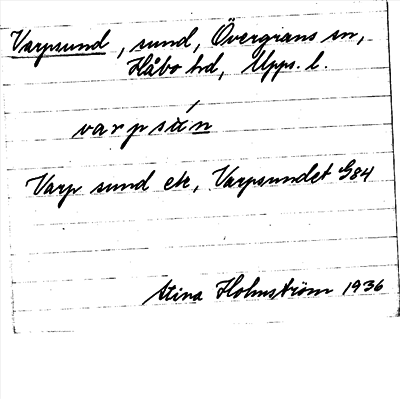 Varpsund, sund, Övergrans sn,
Håbo hd, Upps. l.
varpsún
Varp sund ek, Varpsundet G84
Stina Holmström 1936